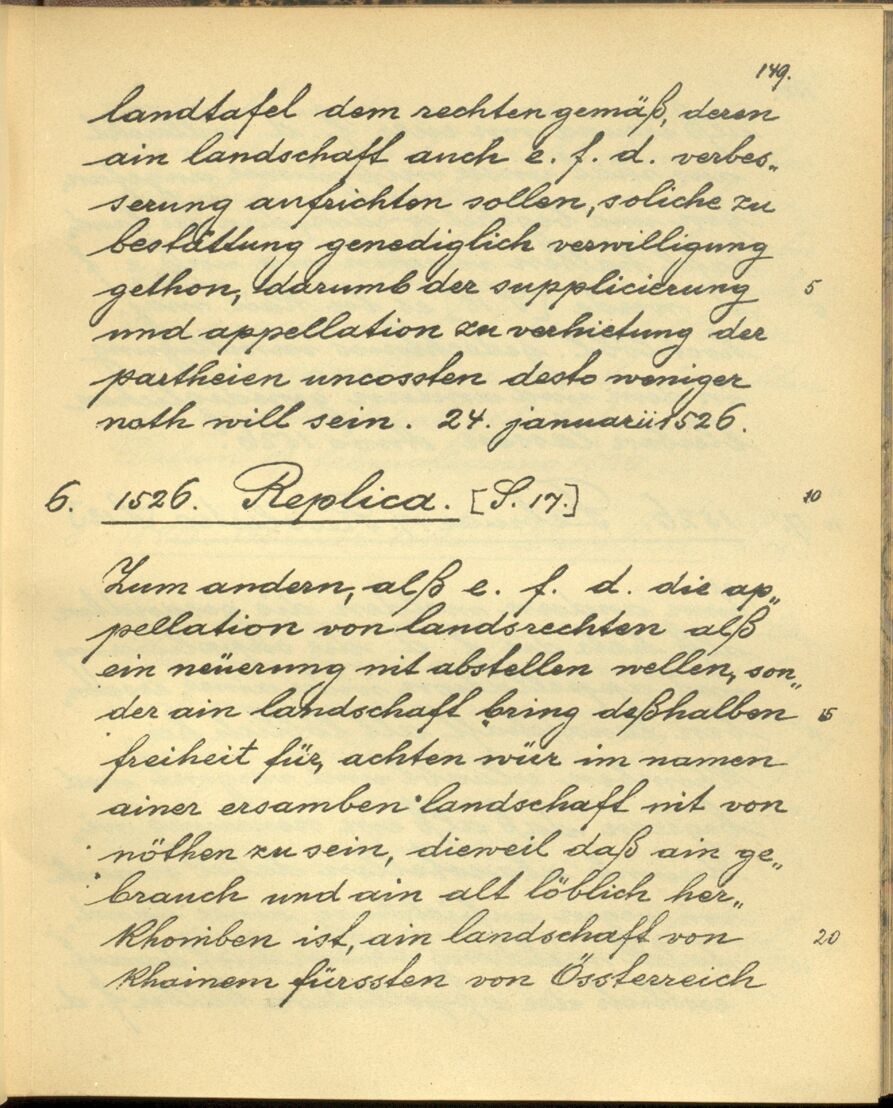 149.
landtafel dem rechten gemäß, deren
ain landschaft auch e. f. d. verbes„
serung aufrichten sollen, soliche zu
bestättung genediglich verwilligung
gethon, darumb der supplicierung 5
und appellation zu verhietung der
partheien uncossten desto weniger
noth will sein. 24. januarii 1526.
6. 1526. Replica. [S. 17.] 10
Zum andern, alß e. f. d. die ap„
pellation von landsrechten alß
ein neüerung nit abstellen wellen, son„
der ain landschaft bring deßhalben 15
freiheit für, achten wür im namen
ainer ersamben landschaft nit von
nöthen zu sein, dieweil daß ain ge„
brauch und ain alt löblich her„
khomben ist, ain landschaft von 20
khainem fürssten von Össterreich